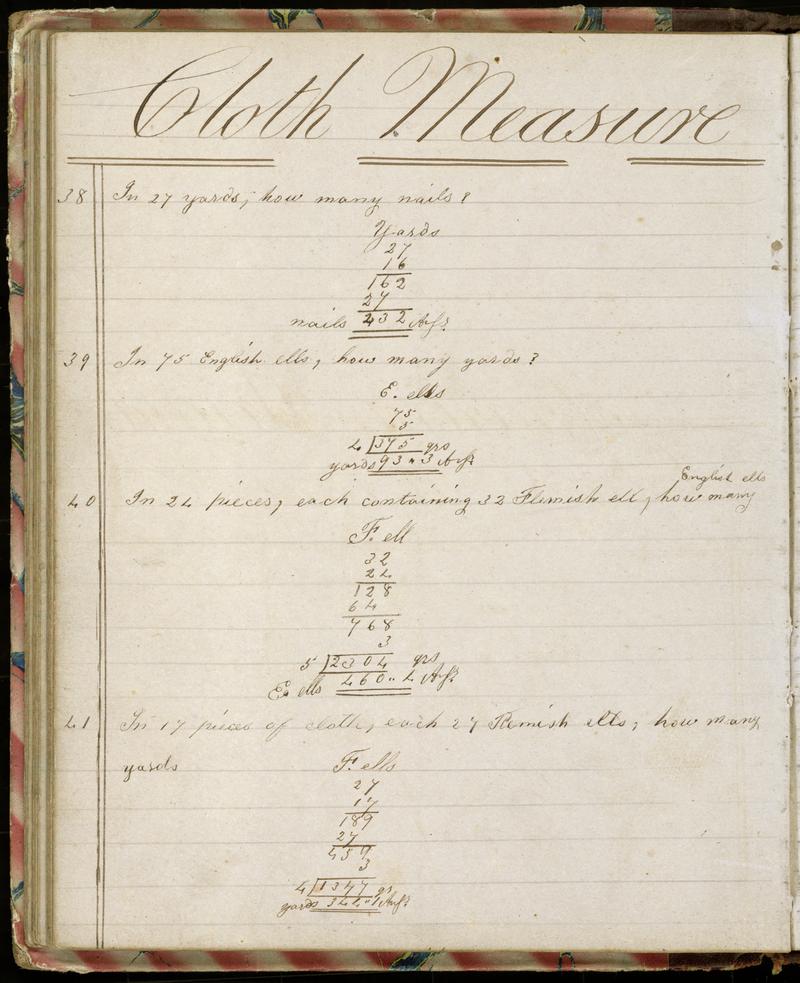 Cloth Measure
38 In 27 yards, how many nails?
Yards
27
16
162
27
nails 432 Ans
39 In 75 English ells, how many yards?
E. ells
75
5
4 375 qrs
yards 93 " 3 Ans
English ells
40 In 24 pieces, each containing 32 Flemish ell, how many
F. ell
32
24
128
64
768
3
5 2304 qrs
E. ells 460 " 4 Ans
41 In 17 pieces of cloth, each 27 Flemish ells, how many
yards F. ells
27
17
189
27
459
3
4 1377 qrs
yards 344 " 1 Ans